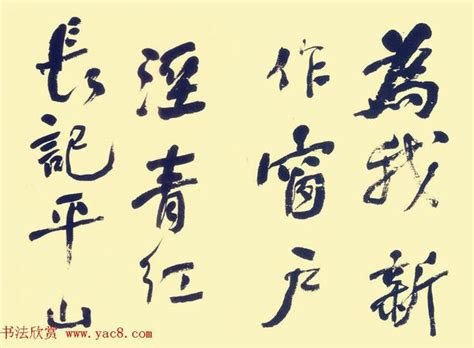 為我新
作窗戶
溼青紅
長記平山
书法欣赏 www.yac8.com